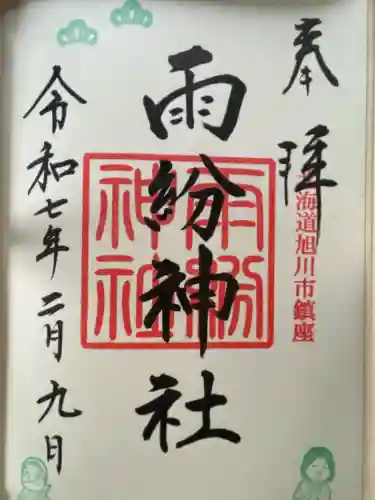 奉拝
北海道旭川市鎮座
雨紛神社
雨紛神社
令和七年二月九日